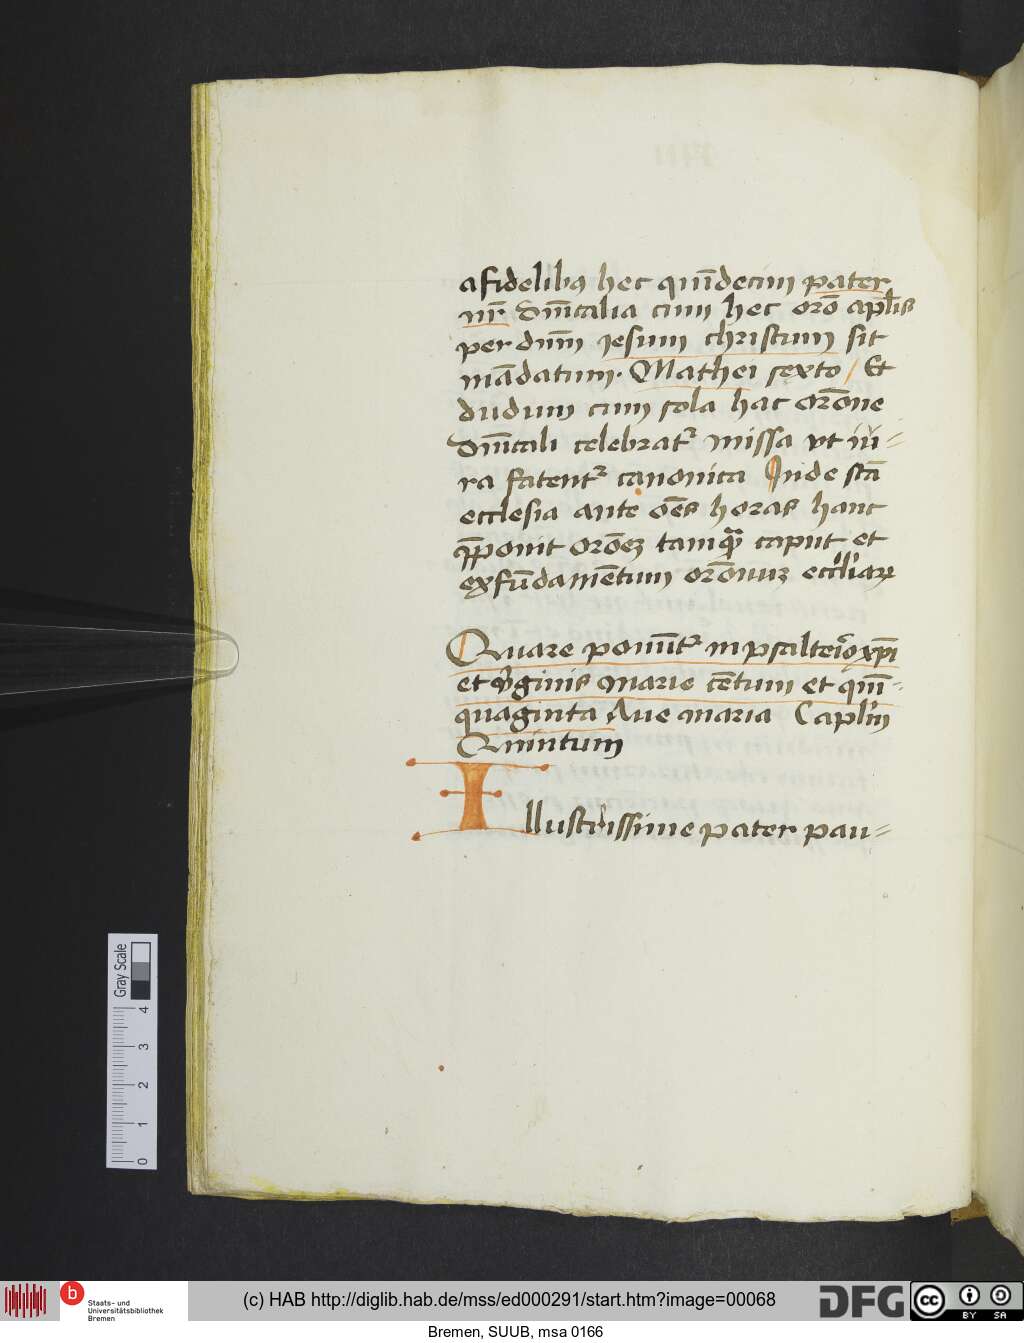 a fidelibꝫ hec quīdecim pater
nr̄ dn̄icalia cum hec orō apl̄is
per dnm̄ iesum christum sit
mādatum. Mathei sexto / Et
dudum cum sola hac orōne
dn̄icali celebratꝛ missa vt iu=
ra fatentꝛ canonica Inde scā
ecclesia ante oēs horas hanc
p̄ponit orōeꝫ tamqᷓ caput et
ex fūdamētum orōnuꝫ eccl̄iaꝝ
Quare ponūtꝛ in psalterio xp̄i
et v̓ginis marie cētum et quī=
quaginta Aue maria Caplm̄
Quintum
Illustrissime pater pau=
Gray Scale
0 1 2 3 4
b
Staats- und
Universitätsbibliothek
Bremen
(c) HAB http://diglib.hab.de/mss/ed000291/start.htm?image=00068
DFG
cc BY SA
Bremen, SUUB, msa 0166